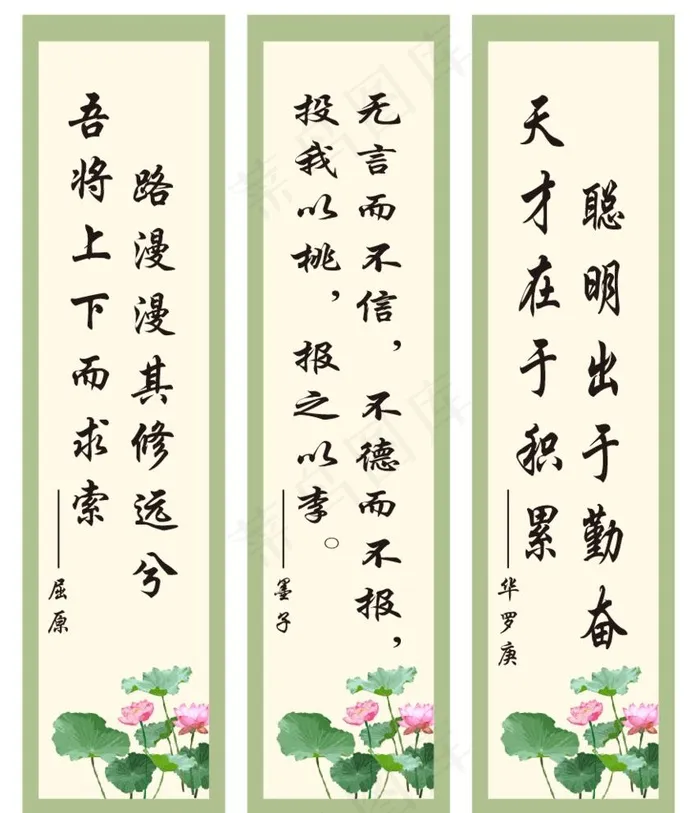 路漫漫其修远兮
吾将上下而求索
——屈原
无言而不信，不德而不报，
投我以桃，报之以李。
——墨子
聪明出于勤奋
天才在于积累
——华罗庚
菜鸟图库
菜鸟图库
菜鸟图库